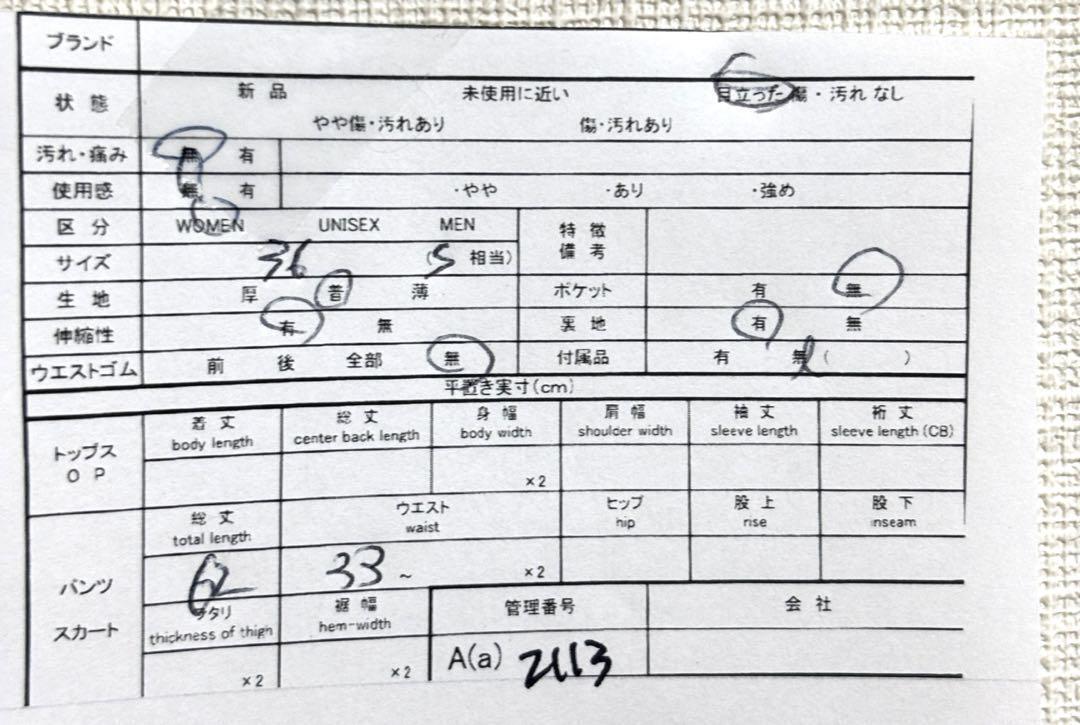 ブランド
状 態 新 品 未使用に近い 目立った 傷・汚れ なし
やや傷・汚れあり 傷・汚れあり
汚れ・痛み 無 有
使用感 無 有 ・やや ・あり ・強め
区 分 WOMEN UNISEX MEN 特 徴
備 考
サイズ 36 (S 相当)
生 地 厚 普 薄 ポケット 有 無
伸縮性 有 無 裏 地 有 無
ウエストゴム 前 後 全部 無 付属品 有 無 ( )
平置き実寸(cm)
トップス
O P
着 丈 総 丈 身 幅 肩 幅 袖 丈 裄 丈
body length center back length body width shoulder width sleeve length sleeve length (CB)
×2
パンツ
スカート
総 丈 ウエスト ヒップ 股 上 股 下
total length waist hip rise inseam
62 33 ~ ×2
ワタリ 裾 幅 管理番号 会 社
thickness of thigh hem-width
×2 ×2 A(a) 2113